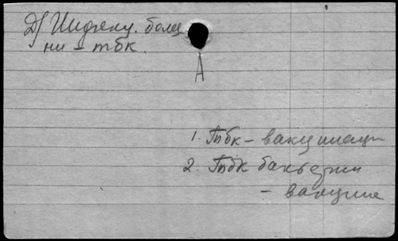 Д) Инфекц. болез
ни – тбк.
А
1. Тбк – вакцинаци
2. Тбк бактерии
– вакцине